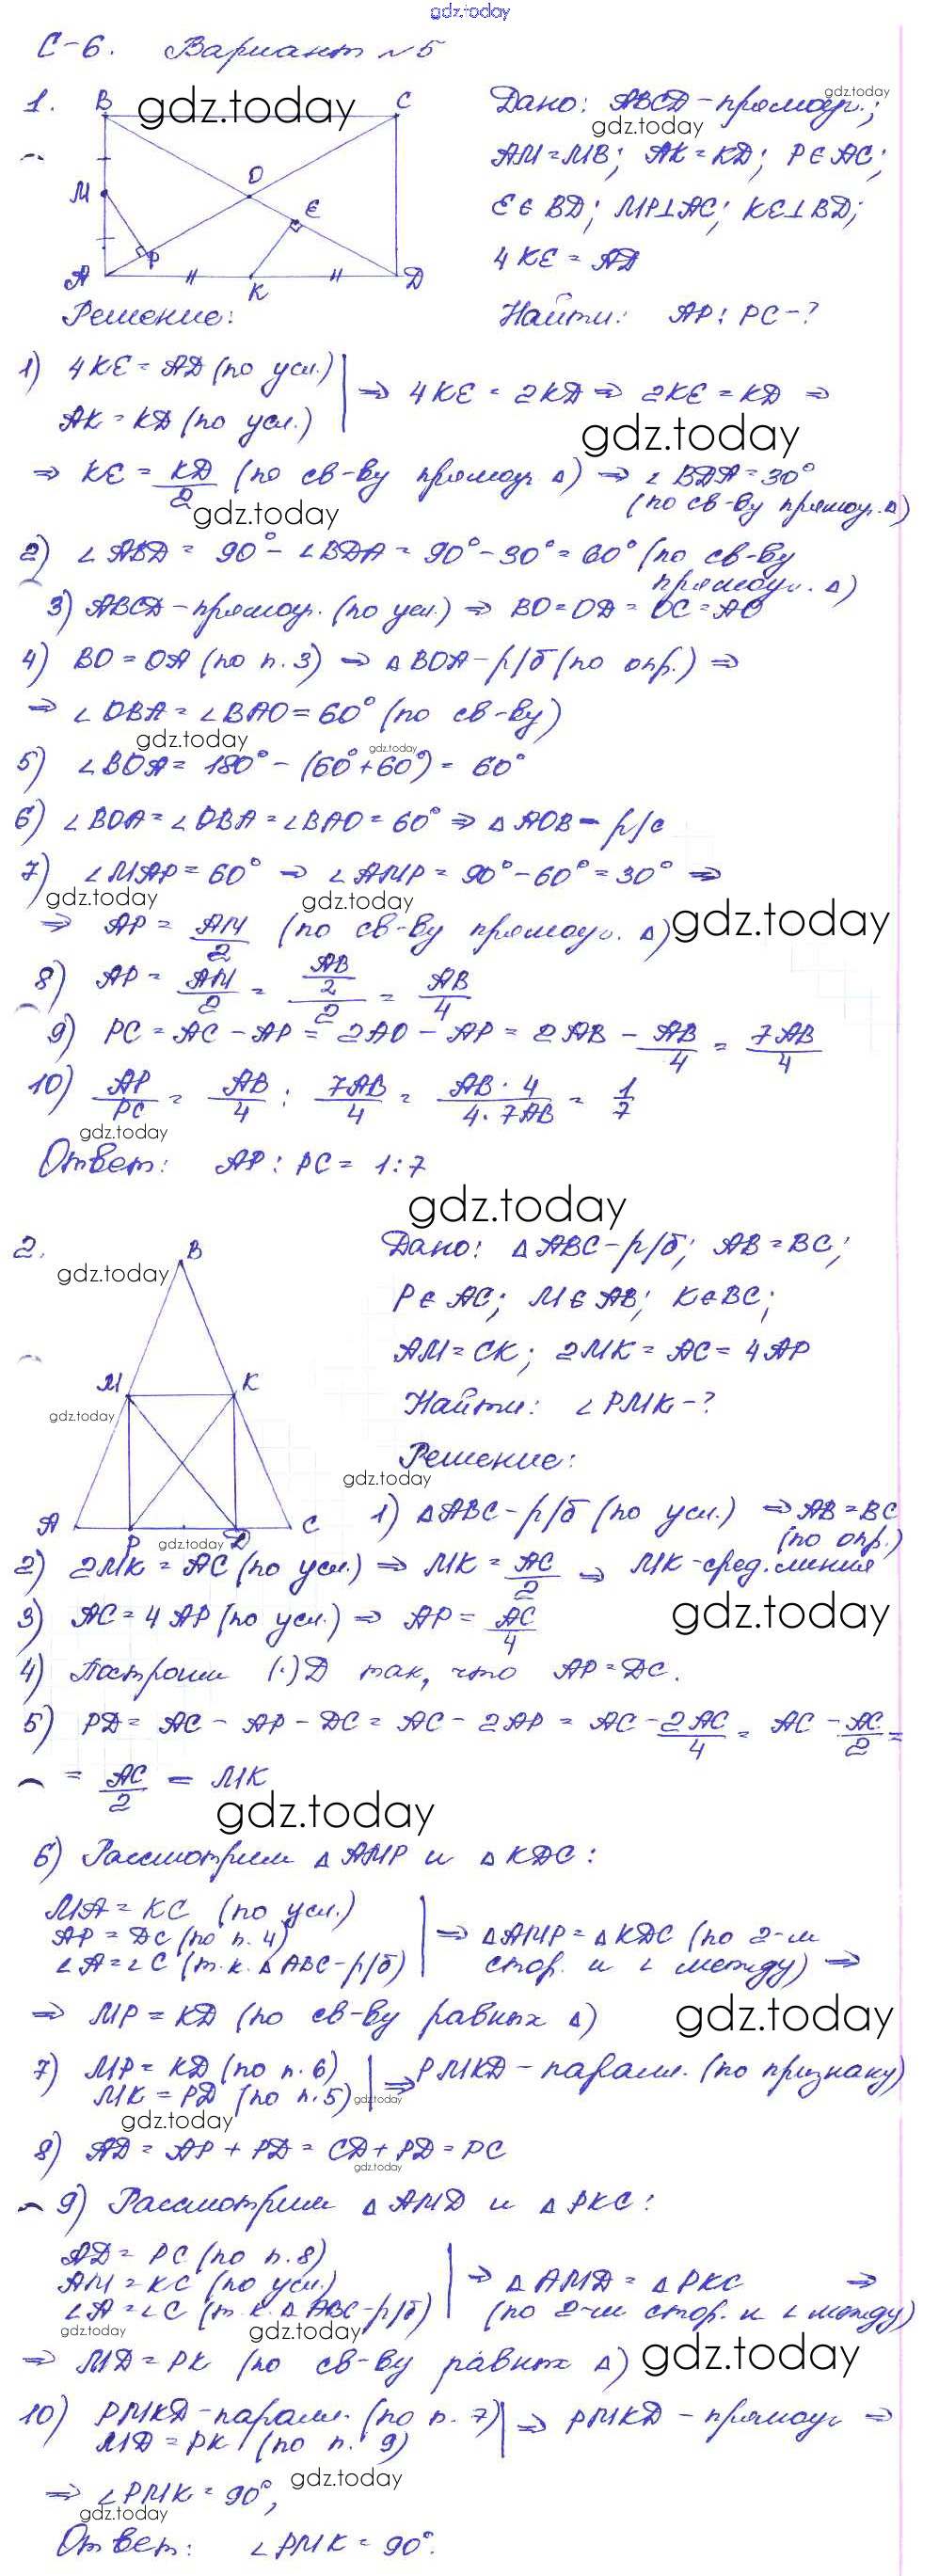 gdz.today
С-6. Вариант №5
1. B gdz.today C
Дано: ABCD-прямоуг.;
gdz.today
gdz.today
AM=MB; AK=KD; P∈AC;
M O E
E∈BD; MP⊥AC; KE⊥BD;
P
4KE=AD
A K D
Решение: Найти: AP:PC-?
1) 4KE=AD (по усл.)
AK=KD (по усл.) ⇒ 4KE=2KD ⇒ 2KE=KD ⇒
gdz.today
⇒ KE = KD/2 (по св-ву прямоуг. Δ) ⇒ ∠BDA=30°
gdz.today (по св-ву прямоуг. Δ)
2) ∠ABD = 90°-∠BDA = 90°-30°=60° (по св-ву
прямоуг. Δ)
3) ABCD-прямоуг. (по усл.) ⇒ BO=OD=OC=AO
4) BO=OA (по п.3) ⇒ ΔBOA-р/б (по опр.) ⇒
⇒ ∠OBA=∠BAO=60° (по св-ву)
gdz.today gdz.today
5) ∠BOA= 180°-(60°+60°)= 60°
6) ∠BOA=∠OBA=∠BAO=60° ⇒ ΔAOB-р/с
7) ∠MAP=60° ⇒ ∠AMP=90°-60°=30° ⇒
gdz.today gdz.today gdz.today
⇒ AP = AM/2 (по св-ву прямоуг. Δ)
8) AP = AM/2 = (AB/2)/2 = AB/4
9) PC=AC-AP=2AO-AP=2AB-AB/4=7AB/4
10) AP/PC = AB/4 : 7AB/4 = AB·4/4·7AB = 1/7
gdz.today
Ответ: AP:PC=1:7
gdz.today
2. B
Дано: ΔABC-р/б; AB=BC;
gdz.today
P∈AC; M∈AB; K∈BC;
AM=CK; 2MK=AC=4AP
M K
Найти: ∠PMK-?
gdz.today
Решение:
gdz.today
1) ΔABC-р/б (по усл.) ⇒ AB=BC
(по опр.)
A P D C
gdz.today
2) 2MK=AC (по усл.) ⇒ MK=AC/2 ⇒ MK-сред.линия
3) AC=4AP (по усл.) ⇒ AP=AC/4
gdz.today
4) Построим (·)D так, что AP=DC.
5) PD=AC-AP-DC=AC-2AP=AC-2AC/4=AC-AC/2=
=AC/2=MK
gdz.today
6) Рассмотрим ΔAMP и ΔKDC:
MA=KC (по усл.)
AP=DC (по п.4)
∠A=∠C (т.к. ΔABC-р/б)
⇒ ΔAMP=ΔKDC (по 2-м
стор. и ∠ между) ⇒
⇒ MP=KD (по св-ву равных Δ)
gdz.today
7) MP=KD (по п.6)
MK=PD (по п.5) ⇒ PMKD-паралл. (по признаку)
gdz.today
gdz.today
8) AD=AP+PD=CD+PD=PC
gdz.today
9) Рассмотрим ΔAMD и ΔPKC:
AD=PC (по п.8)
AM=KC (по усл.)
∠A=∠C (т.к. ΔABC-р/б)
⇒ ΔAMD=ΔPKC ⇒
(по 2-м стор. и ∠ между)
gdz.today gdz.today
⇒ MD=PK (по св-ву равных Δ)
gdz.today
10) PMKD-паралл. (по п.7)
MD=PK (по п. 9) ⇒ PMKD-прямоуг. ⇒
gdz.today
⇒ ∠PMK=90°,
gdz.today
Ответ: ∠PMK=90°.